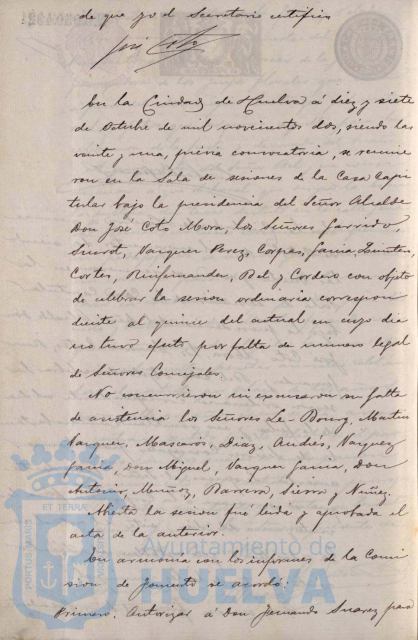 de que yo el Secretario certifico
José Coto
En la Ciudad de Huelva á diez y siete
de Octubre de mil novecientos dos, siendo las
veinte y una, prévia convocatoria, se reunie
ron en la Sala de sesiones de la Casa Capi
tular bajo la presidencia del Señor Alcalde
Don José Coto Mora, los Señores Garrido,
Vazquez Perez, Corpas, Garcia,
Cortes, y Cordero con objeto
de celebrar la sesion ordinaria correspon
diente al quince del actual en cuyo dia
no tuvo efecto por falta de número legal
de Señores Concejales.
No concurrieron ni escusaron su falta
de asistencia los Señores Le-Bourg, Martin
Vazquez, Mascarós, Diaz, Andrés, Vazquez
Garcia, Don Miguel, Vazquez Garcia, Don
Antonio, Muñoz, Barrera, Sierra y Nuñez.
Abierta la sesion fué leida y aprobada el
acta de la anterior.
En armonia con los informes de la Comi
sion de Fomento se acordó:
Primero: Autorizar á Don Fernando Suarez para
PORTUS MARIS
ET TERRAE
Ayuntamiento de
HUELVA